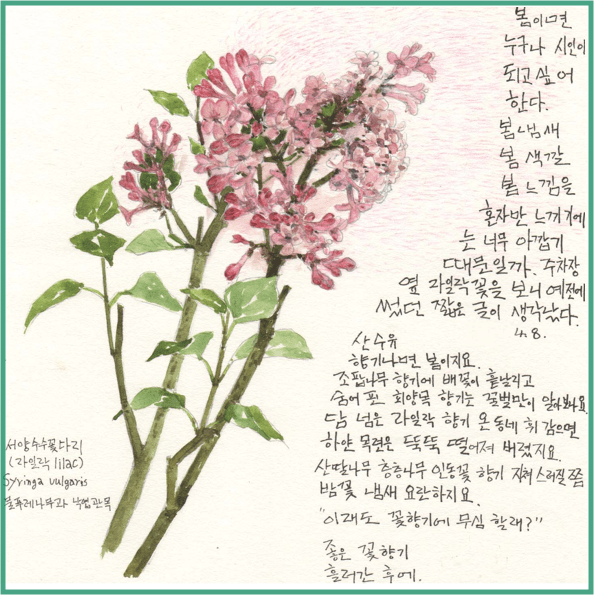 봄이면
누구나 시인이
되고싶어
한다.
봄냄새
봄 색깔
봄 느낌을
혼자만 느끼기에
는 너무 아깝기
때문일까. 주차장
옆 라일락꽃을 보니 예전에
썼던 짧은 글이 생각났다.
4. 8.
산수유
향기나면 봄이지요.
조팝나무 향기에 배꽃이 흩날리고
숨어 핀 회양목 향기는 꿀벌만이 알아봐요.
담 넘은 라일락 향기 온동네 휘 감으면
하얀 목련은 뚝뚝 떨어져 버렸지요.
산딸나무 층층나무 인동꽃 향기 지쳐 스러질 쯤
밤꽃 냄새 요란하지요.
"이래도 꽃향기에 무심 할래?"
좋은 꽃향기
흘러간 후에.
서양수수꽃다리
(라일락 lilac)
Syringa vulgaris
물푸레나무과 낙엽관목